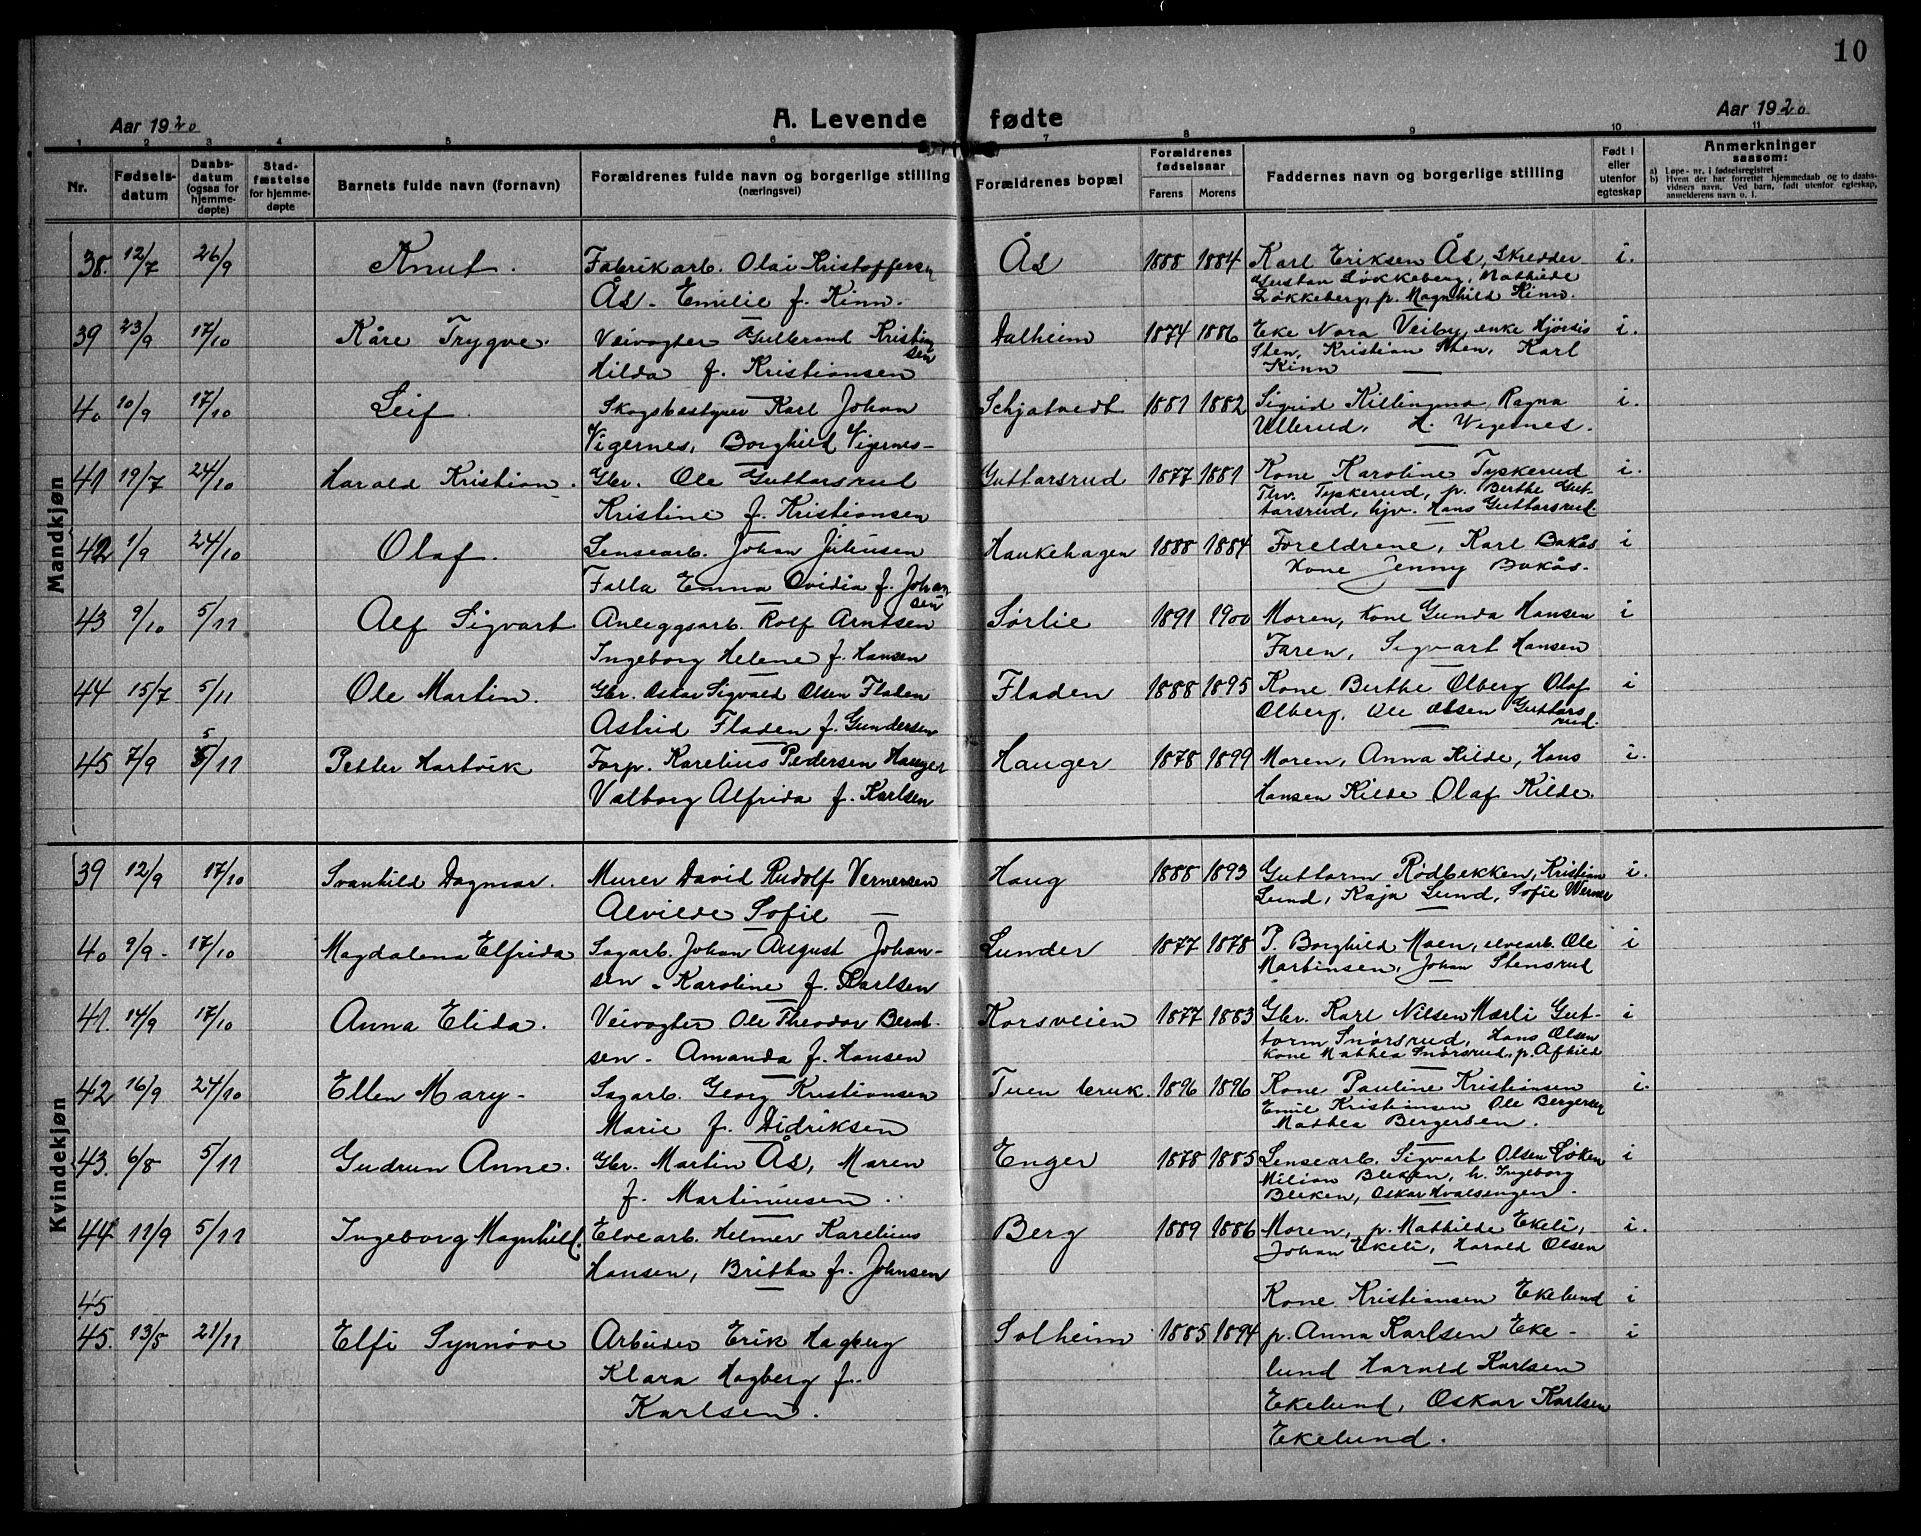 10
Aar 1920 A. Levende fødte Aar 1920
1 2 3 4 5 6 7 8 9 10 11
Nr. Fødselsdatum Daabsdatum (ogsaa for hjemmedøpte) Stadfæstelse for hjemmedøpte Barnets fulde navn (fornavn) Forældrenes fulde navn og borgerlige stilling (næringsvei) Forældrenes bopæl Forældrenes fødselsaar Farens Morens Faddernes navn og borgerlige stilling Født i eller utenfor egteskap Anmerkninger saasom:
a) Løpe-nr. i fødselsregistret
b) Hvem der har forrettet hjemmedaab og to daabsvidners navn. Ved barn, født utenfor egteskap, anmelderens navn o. l.
Mandkjøn
38. 12/7 26/9 Knut. Fabrikarb. Olai Kristoffersen Ås 1888 1884 Karl Eriksen Ås, Skredder i.
Ås. Emilie f. Kinn. Gustav Løkkeberg, Mathilde
Løkkeberg, p. Magnhild Kinn.
39 23/9 17/10 Kåre Trygve. Veivogter Gulbrand Kristian Dalheim 1874 1886 Eke Nora Veiby, enke Hjørdis i.
sen
Hilda f. Kristiansen Sten, Kristian Sten, Karl
Kinn
40 10/9 17/10 Leif. Skogsbestyrer Karl Johan Schjatvedt 1881 1882 Sigrid Killingmo, Ragna i.
Vigernes, Borghild Vigernes- Ullerud, H. Wigernes.
41 19/7 24/10 Harald Kristian. Gbr. Ole Guttorsrud Guttorsrud 1877 1881 Kone Karoline Tyskerud i.
Kristine f. Kristiansen Thv. Tyskerud, p. Berthe Gut-
torsrud, hjv. Hans Guttorsrud.
42 1/9 24/10 Olaf. Lensearb. Johan Juliussen Haukehagen 1888 1884 Foreldrene, Karl Bakås i
Falla Emma Ovidia f. Johan Kone Jenny Bakås.
sen
43 9/10 5/11 Alf Sigvart Anleggsarb. Rolf Arntsen Sørlie 1891 1900 Moren, Kone Gunda Hansen i
Ingeborg Helene f. Hansen Faren, Sigvart Hansen
44 15/7 5/11 Ole Martin. Gbr. Oskar Sigvald Olsen Fladen Fladen 1888 1895 Kone Berthe Olberg Olaf i
Astrid Fladen f. Gundersen Olberg, Ole Olsen Guttors
rud.
45 7/9 5/11 Petter Hartvik Forp. Karelius Pedersen Hauger Hauger 1878 1899 Moren, Anna Kilde, Hans i.
Valborg Alfrida f. Karlsen Hansen Kilde Olaf Kilde.
Kvindekjøn
39 12/9 17/10 Svanhild Dagmar. Murer David Rudolf Vernersen Haug 1888 1893 Guttorm Rødbekken, Kristian i.
Alvilde Sofie — Lund, Kaja Lund, Sofie Werner
40 9/9- 17/10 Magdalena Elfrida Sagarb. Johan August Johan- Lunder 1877 1878 P. Borghild Moen, elvearb. Ole i
sen. Karoline f. Karlsen Martinsen, Johan Stensrud
41. 14/9 17/10 Anna Elida. Veivogter Ole Theodor Bernt- Korsveien 1877 1883 Gbr. Karl Nilsen Mærli Gut- i
sen. Amanda f. Hansen torm Snørsrud, Hans Olsen
Kone Mathea Snørsrud, p. Afhild
42 16/9 24/10 Ellen Mary- Sagarb. Georg Kristiansen Tuen bruk. 1896 1896 Kone Pauline Kristiansen i.
Marie f. Didriksen Emil Kristiansen Ole Bergersen
Mathea Bergersen.
43. 6/8 5/11 Gudrun Anne. Gbr. Martin Ås, Maren Enger 1878 1885 Lensearb. Sigvart Olsen Løken i
f. Martiniusen. Milian Bleken, h. Ingeborg
Bleken, Oskar Hvalsengen.
44 11/9 5/11 Ingeborg Magnhild. Elvearb. Helmer Karelius Berg 1889 1886 Moren, p. Mathilde Ekeli, i.
Hansen, Britha f. Johnsen Johan Ekeli, Harald Olsen
45 Kone Kristiansen Ekelund i
45. 13/5 21/11 Elfi Synnøve Arbeider Erik Hagberg Solheim 1885 1894 p. Anna Karlsen Eke- i
Klara Hagberg f. lund Harald Karlsen
Karlsen. Ekelund, Oskar Karlsen
Ekelund.